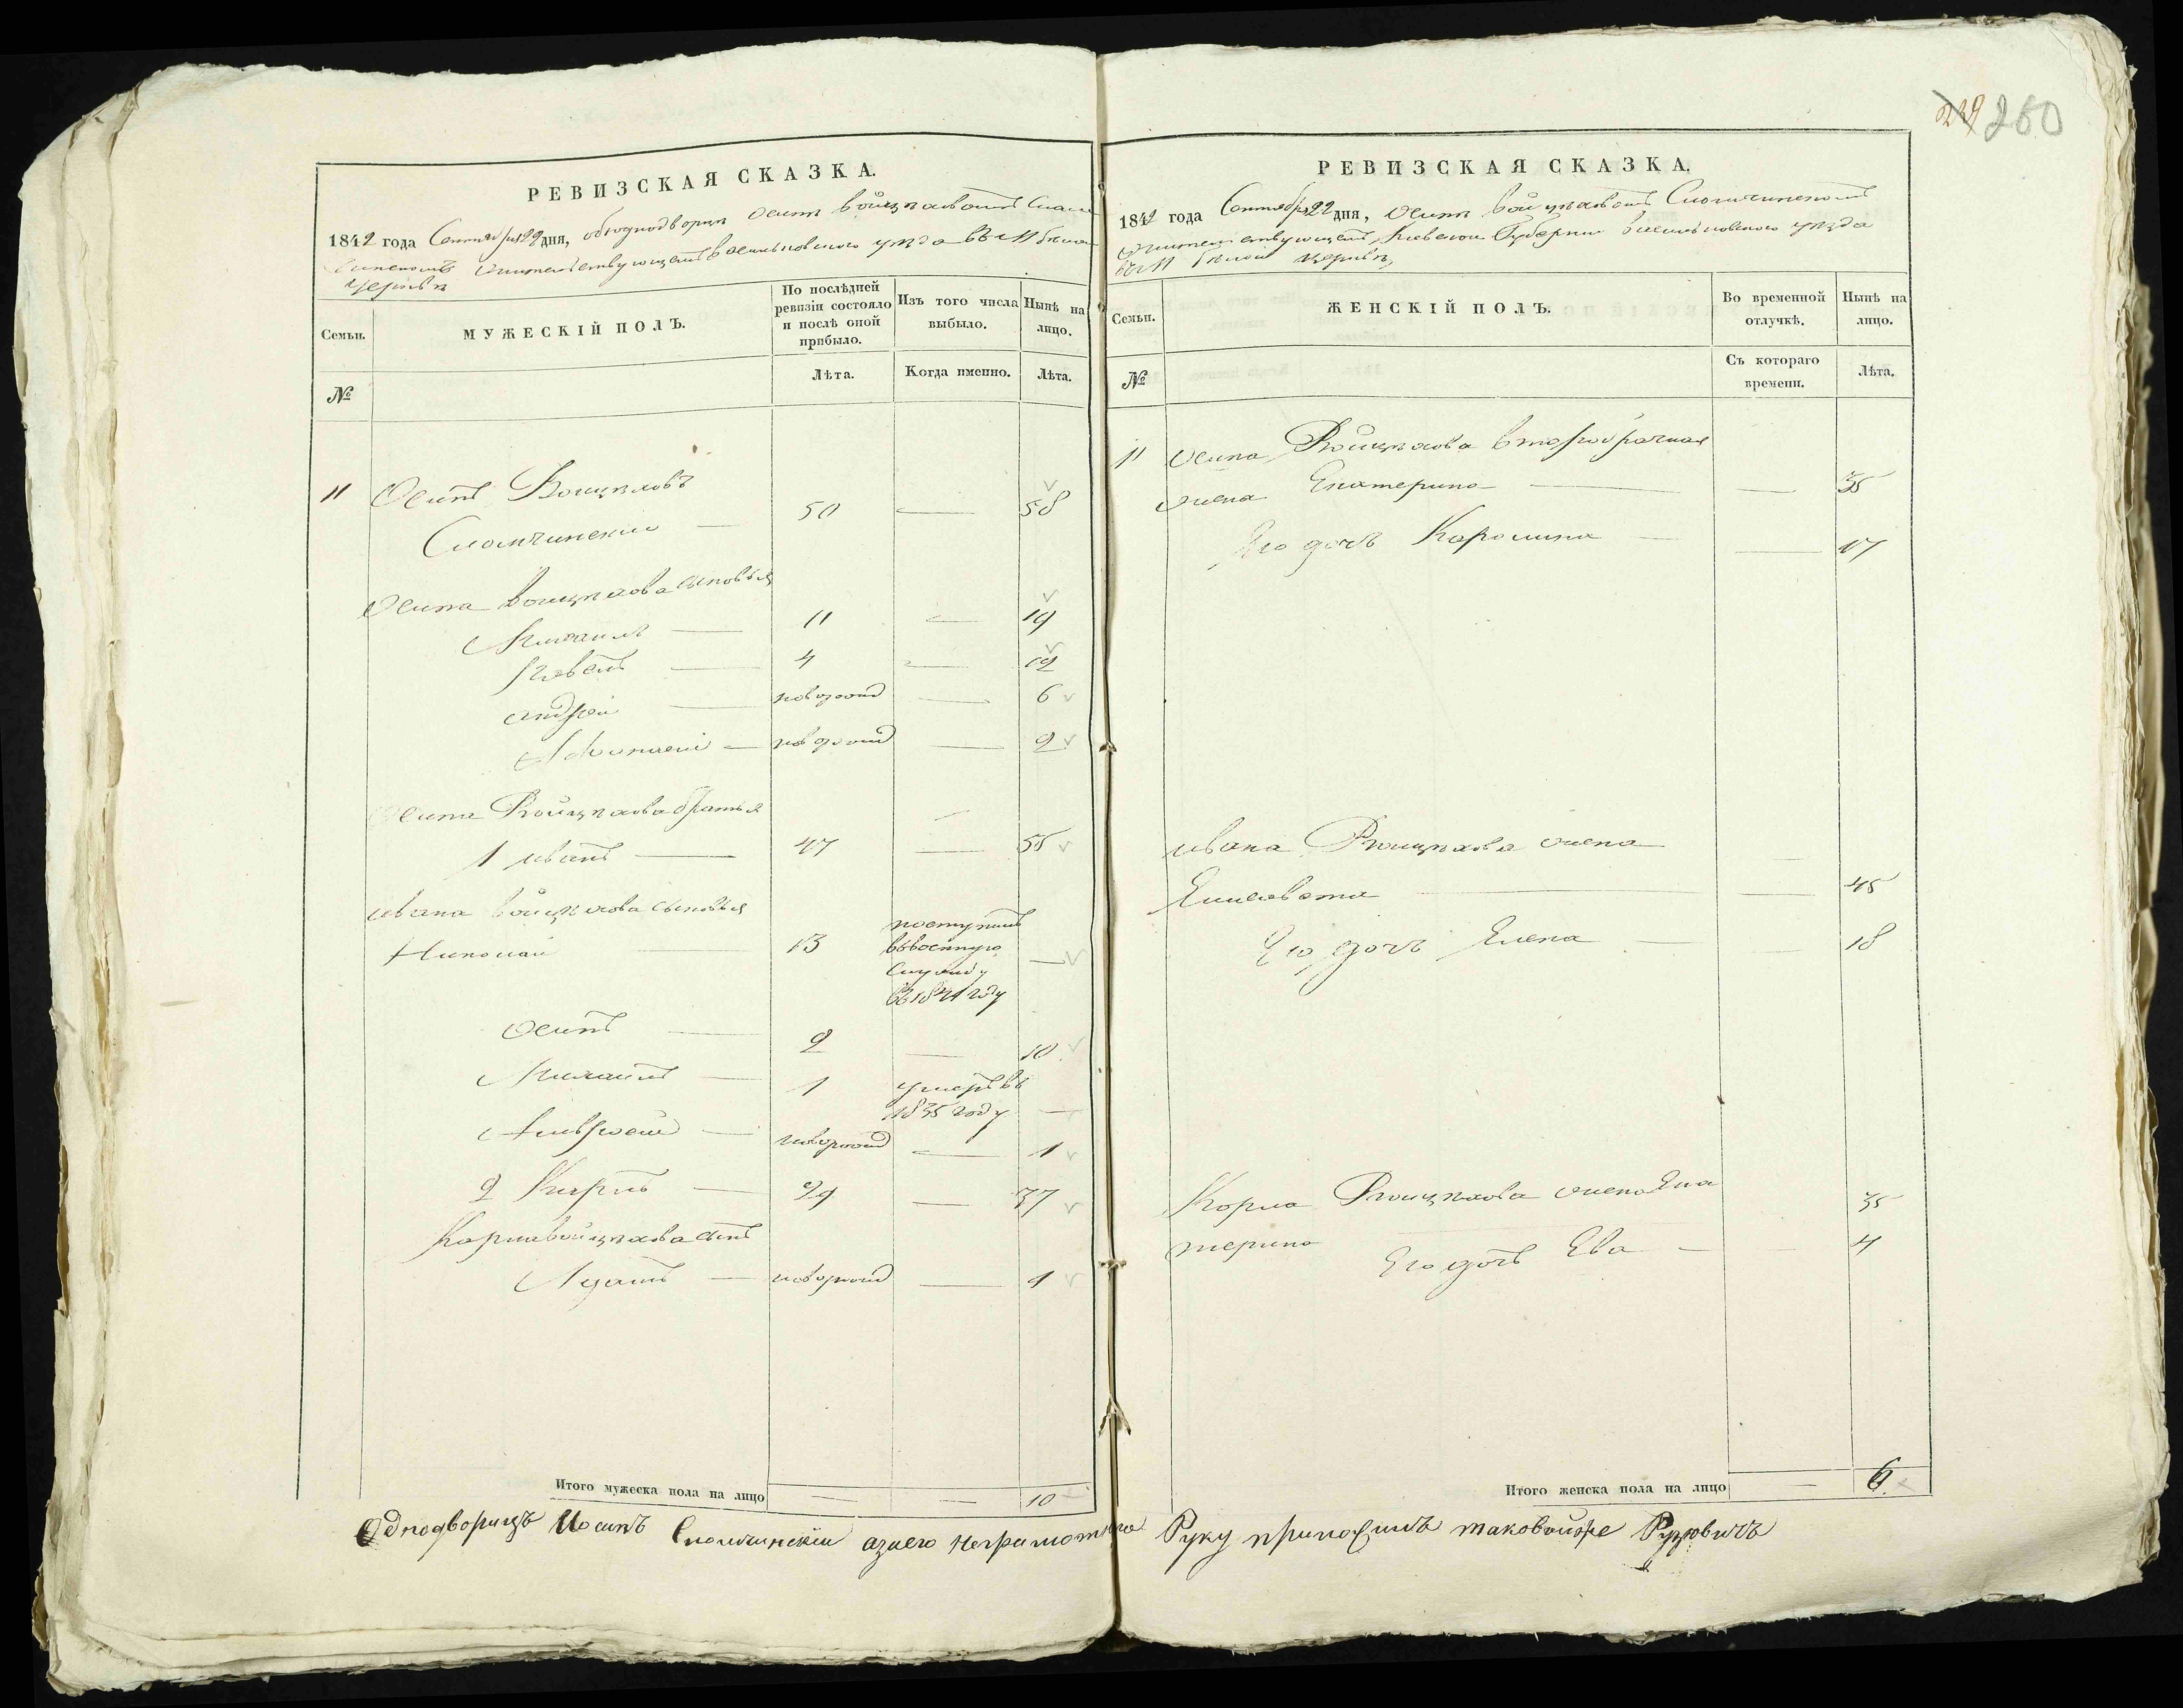 229 260
РЕВИЗСКАЯ СКАЗКА.
1842 года Сентября 22 дня, об однодворцѣ Осипѣ Войцѣховомъ Слом
чинскомъ жительствующемъ Васильковского уѣзда въ М Белой
Церквѣ
Семьи.
МУЖЕСКІЙ ПОЛЪ.
По послѣдней ревизіи состояло и послѣ оной прибыло.
Изъ того числа выбыло.
Нынѣ на лицо.
№
Лѣта.
Когда именно.
Лѣта.
11 Осипъ Войцѣховъ
Сломчинскій — 50 — 58
Осипа Войцѣхова сыновья
Михаилъ — 11 — 19
Павелъ — 4 — 12
Андрей — новорожд — 6
Афанасій — новорожд — 2
Осипа Войцѣхова братья
1 Иванъ — 47 — 55
Ивана Войцѣхова сыновья
Николай — 13 поступилъ въ военную службу въ 1841 году —
Осипъ — 2 — 10
Михаилъ — 1 умеръ въ 1835 году —
Амвросий — новорожд — 1
2 Карлъ — 29 — 37
Карла Войцѣхова сынъ
Адамъ — новорожд — 1
Итого мужеска пола на лицо — — 10
РЕВИЗСКАЯ СКАЗКА.
1842 года Сентября 22 дня, Осипѣ Войцѣховомъ Сломчинскомъ
жительствующемъ Киевской Губернии Васильковского уѣзда
въ М Белой Церквѣ,
Семьи.
ЖЕНСКІЙ ПОЛЪ.
Во временной отлучкѣ.
Нынѣ на лицо.
№
Съ котораго времени.
Лѣта.
11 Осипа Войцѣхова второбрачная
жена Екатерина — — 35
Его дочь Каролина — — 17
Ивана Войцѣхова жена
Елисавета — — 45
Его дочь Елена — 18
Карла Войцѣхова жена Ека
терина 35
Его дочь Ева — — 4
Итого женска пола на лицо — 6
Однодворецъ Иосипъ Сломчинскій азаего неграмотного Руку приложилъ таковойже